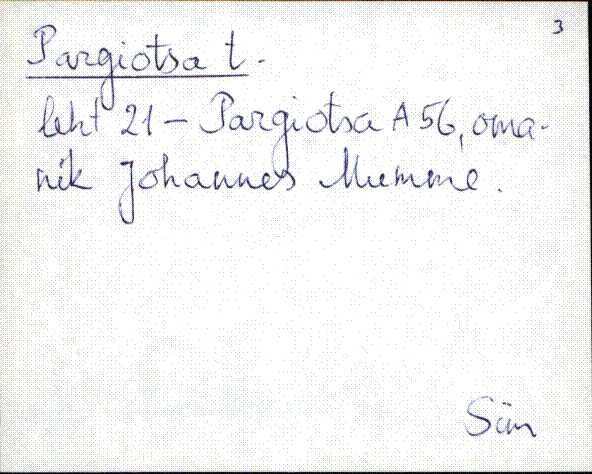 3
Pargiotsa t.
leht 21 - Pargiotsa A 56, oma-
nik Johannes Mumme.